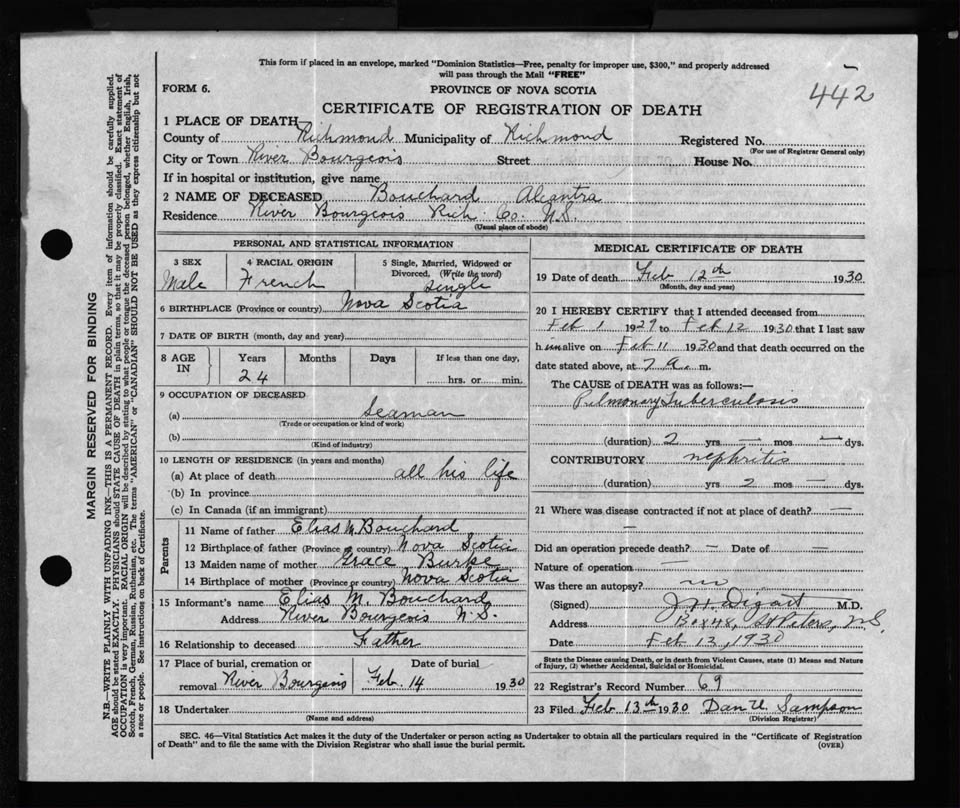 This form if placed in an envelope, marked "Dominion Statistics—Free, penalty for improper use, $300," and properly addressed
will pass through the Mail "FREE"
442
FORM 6.
PROVINCE OF NOVA SCOTIA
CERTIFICATE OF REGISTRATION OF DEATH
1 PLACE OF DEATH
County of Richmond Municipality of Richmond Registered No.
(For use of Registrar General only)
City or Town River Bourgeois Street House No.
If in hospital or institution, give name
2 NAME OF DECEASED Bouchard Alcantra
Residence River Bourgeois Rich. Co. N.S.
(Usual place of abode)
PERSONAL AND STATISTICAL INFORMATION
3 SEX
Male
4 RACIAL ORIGIN
French
5 Single, Married, Widowed or
Divorced, (Write the word)
Single
6 BIRTHPLACE (Province or country) Nova Scotia
7 DATE OF BIRTH (month, day and year)
8 AGE IN
Years Months Days If less than one day,
24 hrs. or min.
9 OCCUPATION OF DECEASED
(a) Seaman
(Trade or occupation or kind of work)
(b)
(Kind of industry)
10 LENGTH OF RESIDENCE (in years and months)
(a) At place of death all his life
(b) In province
(c) In Canada (if an immigrant)
Parents
11 Name of father Elias M. Bouchard
12 Birthplace of father (Province or country) Nova Scotia
13 Maiden name of mother Grace Burke
14 Birthplace of mother (Province or country) Nova Scotia
15 Informant's name Elias M. Bouchard
Address River Bourgeois N.S.
16 Relationship to deceased Father
17 Place of burial, cremation or Date of burial
removal River Bourgeois Feb. 14 1930
18 Undertaker
(Name and address)
MEDICAL CERTIFICATE OF DEATH
19 Date of death Feb 12th 1930
(Month, day and year)
20 I HEREBY CERTIFY that I attended deceased from
Feb 1 1929 to Feb 12 1930 that I last saw
him alive on Feb 11 1930 and that death occurred on the
date stated above, at 7 a. m.
The CAUSE OF DEATH was as follows:—
Pulmonary Tuberculosis
(duration) 2 yrs — mos — dys.
CONTRIBUTORY nephritis
(duration) yrs 2 mos — dys.
21 Where was disease contracted if not at place of death? —
—
Did an operation precede death? — Date of —
Nature of operation —
Was there an autopsy? no
(Signed) M.D.
Address Box 48, St Peters, N.S.
Date Feb 13, 1930
State the Disease causing Death, or in death from Violent Causes, state (1) Means and Nature
of Injury, (2) whether Accidental, Suicidal or Homicidal.
22 Registrar's Record Number 69
23 Filed Feb 13th 1930 Dan U. Sampson
(Division Registrar)
SEC. 46—Vital Statistics Act makes it the duty of the Undertaker or person acting as Undertaker to obtain all the particulars required in the "Certificate of Registration
of Death" and to file the same with the Division Registrar who shall issue the burial permit.
(OVER)
MARGIN RESERVED FOR BINDING
N.B.—WRITE PLAINLY WITH UNFADING INK—THIS IS A PERMANENT RECORD. Every item of information should be carefully supplied.
AGE should be stated EXACTLY. PHYSICIANS should STATE CAUSE OF DEATH in plain terms, so that it may be properly classified. Exact statement of
OCCUPATION is very important. RACIAL ORIGIN will be described by stating to what people or tongue the deceased person belonged, whether English, Irish,
Scotch, French, German, Russian, Ruthenian, etc. The terms "AMERICAN" or "CANADIAN" SHOULD NOT BE USED as they express citizenship but not
a race or people. See instructions on back of Certificate.